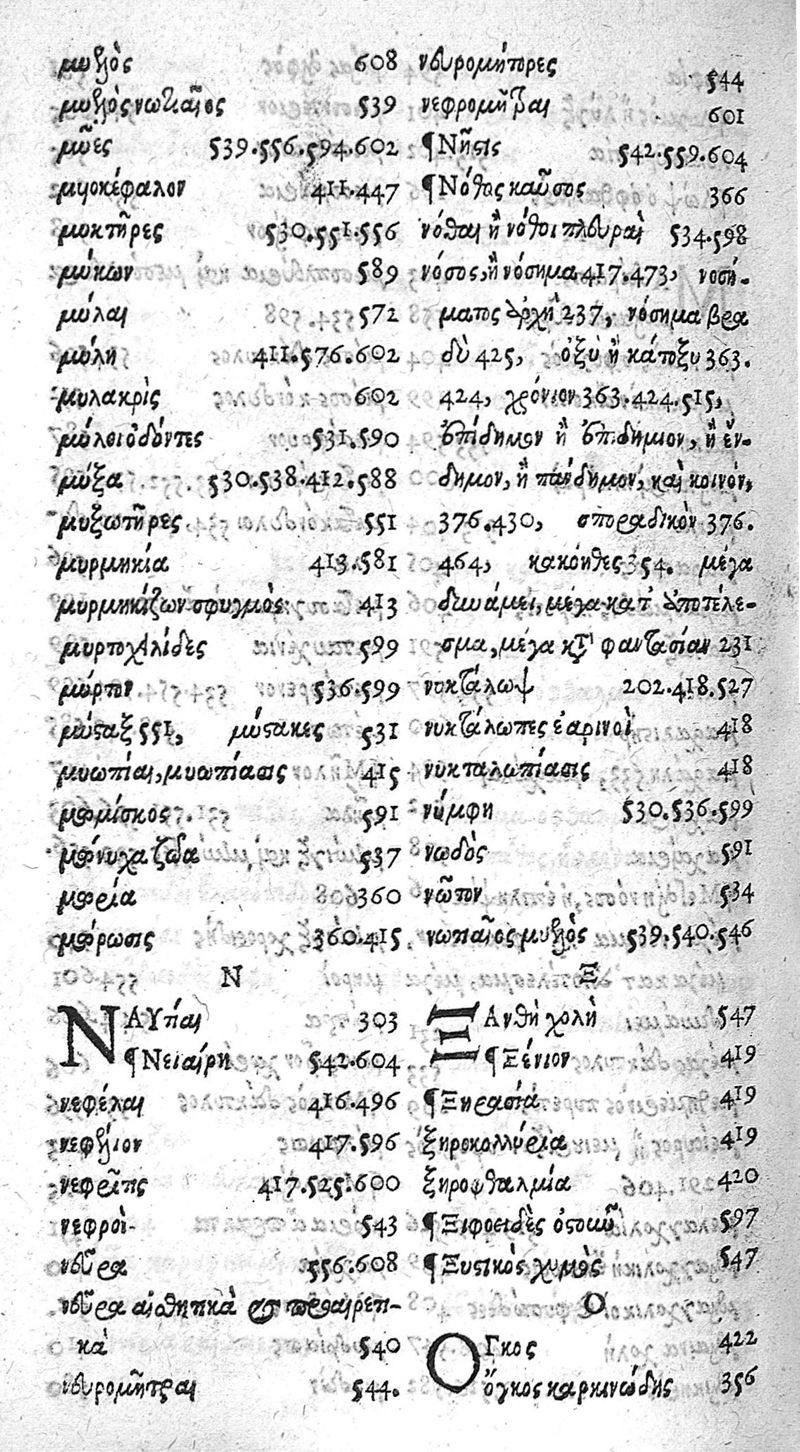 μυελὸς 608
μυελὸς νωτιαῖος 539
μῦες 539.556.594.602
μυοκέφαλον 411.447
μυκτῆρες 530.551.556
μύκων 589
μύλαι 572
μύλη 411.576.602
μυλακρὶς 602
μύλοι ὀδόντες 531.590
μύξα 530.538.412.588
μυξωτῆρες 551
μυρμηκία 413.581
μυρμηκίζων σφυγμὸς 413
μυρτοχειλίδες 599
μύρτον 536.599
μύσταξ 551, μύστακες 531
μυωπίαι, μυωπίασις 415
μωμίσκος 591
μώνυχα ζῶα 537
μωρία 360
μώρωσις 360.415
Ν
ΝΑΥτίαι 303
¶Νειαίρη 542.604
νεφέλαι 416.496
νεφέλιον 417.596
νεφρῖτις 417.525.600
νεφροὶ 543
νεῦρα 556.608
νεῦρα αἰσθητικὰ καὶ προαιρετι-
κὰ 540
νευρομῆτραι 544.
νευρομήτορες 544
νεφρομῆτραι 601
¶Νῆστις 542.559.604
¶Νόθος καῦσος 366
νόθαι ἢ νόθοι πλευραὶ 534.598
νόσος, ἢ νόσημα 417.473, νοσή-
ματος ἀρχὴ 237, νόσημα βρα
δὺ 425, ὀξὺ ἢ κάτοξυ 363.
424, χρόνιον 363.424.515,
ἐπίδημον ἢ ἐπιδήμιον, ἢ ἔν-
δημον, ἢ πάνδημον, καὶ κοινόν,
376.430, σποραδικὸν 376.
464, κακόηθες 354. μέγα
δυνάμει, μέγα κατ' ἀποτέλε-
σμα, μέγα κατὰ φαντασίαν 231
νυκτάλωψ 202.418.527
νυκτάλωπες ἐαρινοὶ 418
νυκταλωπίασις 418
νύμφη 530.536.599
νωδὸς 591
νῶτον 534
νωτιαῖος μυελὸς 539.540.546
Ξ
ΞΑνθὴ χολὴ 547
¶Ξένιον 419
¶Ξηρασία 419
ξηροκολλύρια 419
ξηροφθαλμία 420
¶Ξιφοειδὲς ὀστοῦν 597
¶Ξυστικὸς χυμὸς 547
Ο
ΟΓκος 422
ὄγκος καρκινώδης 356